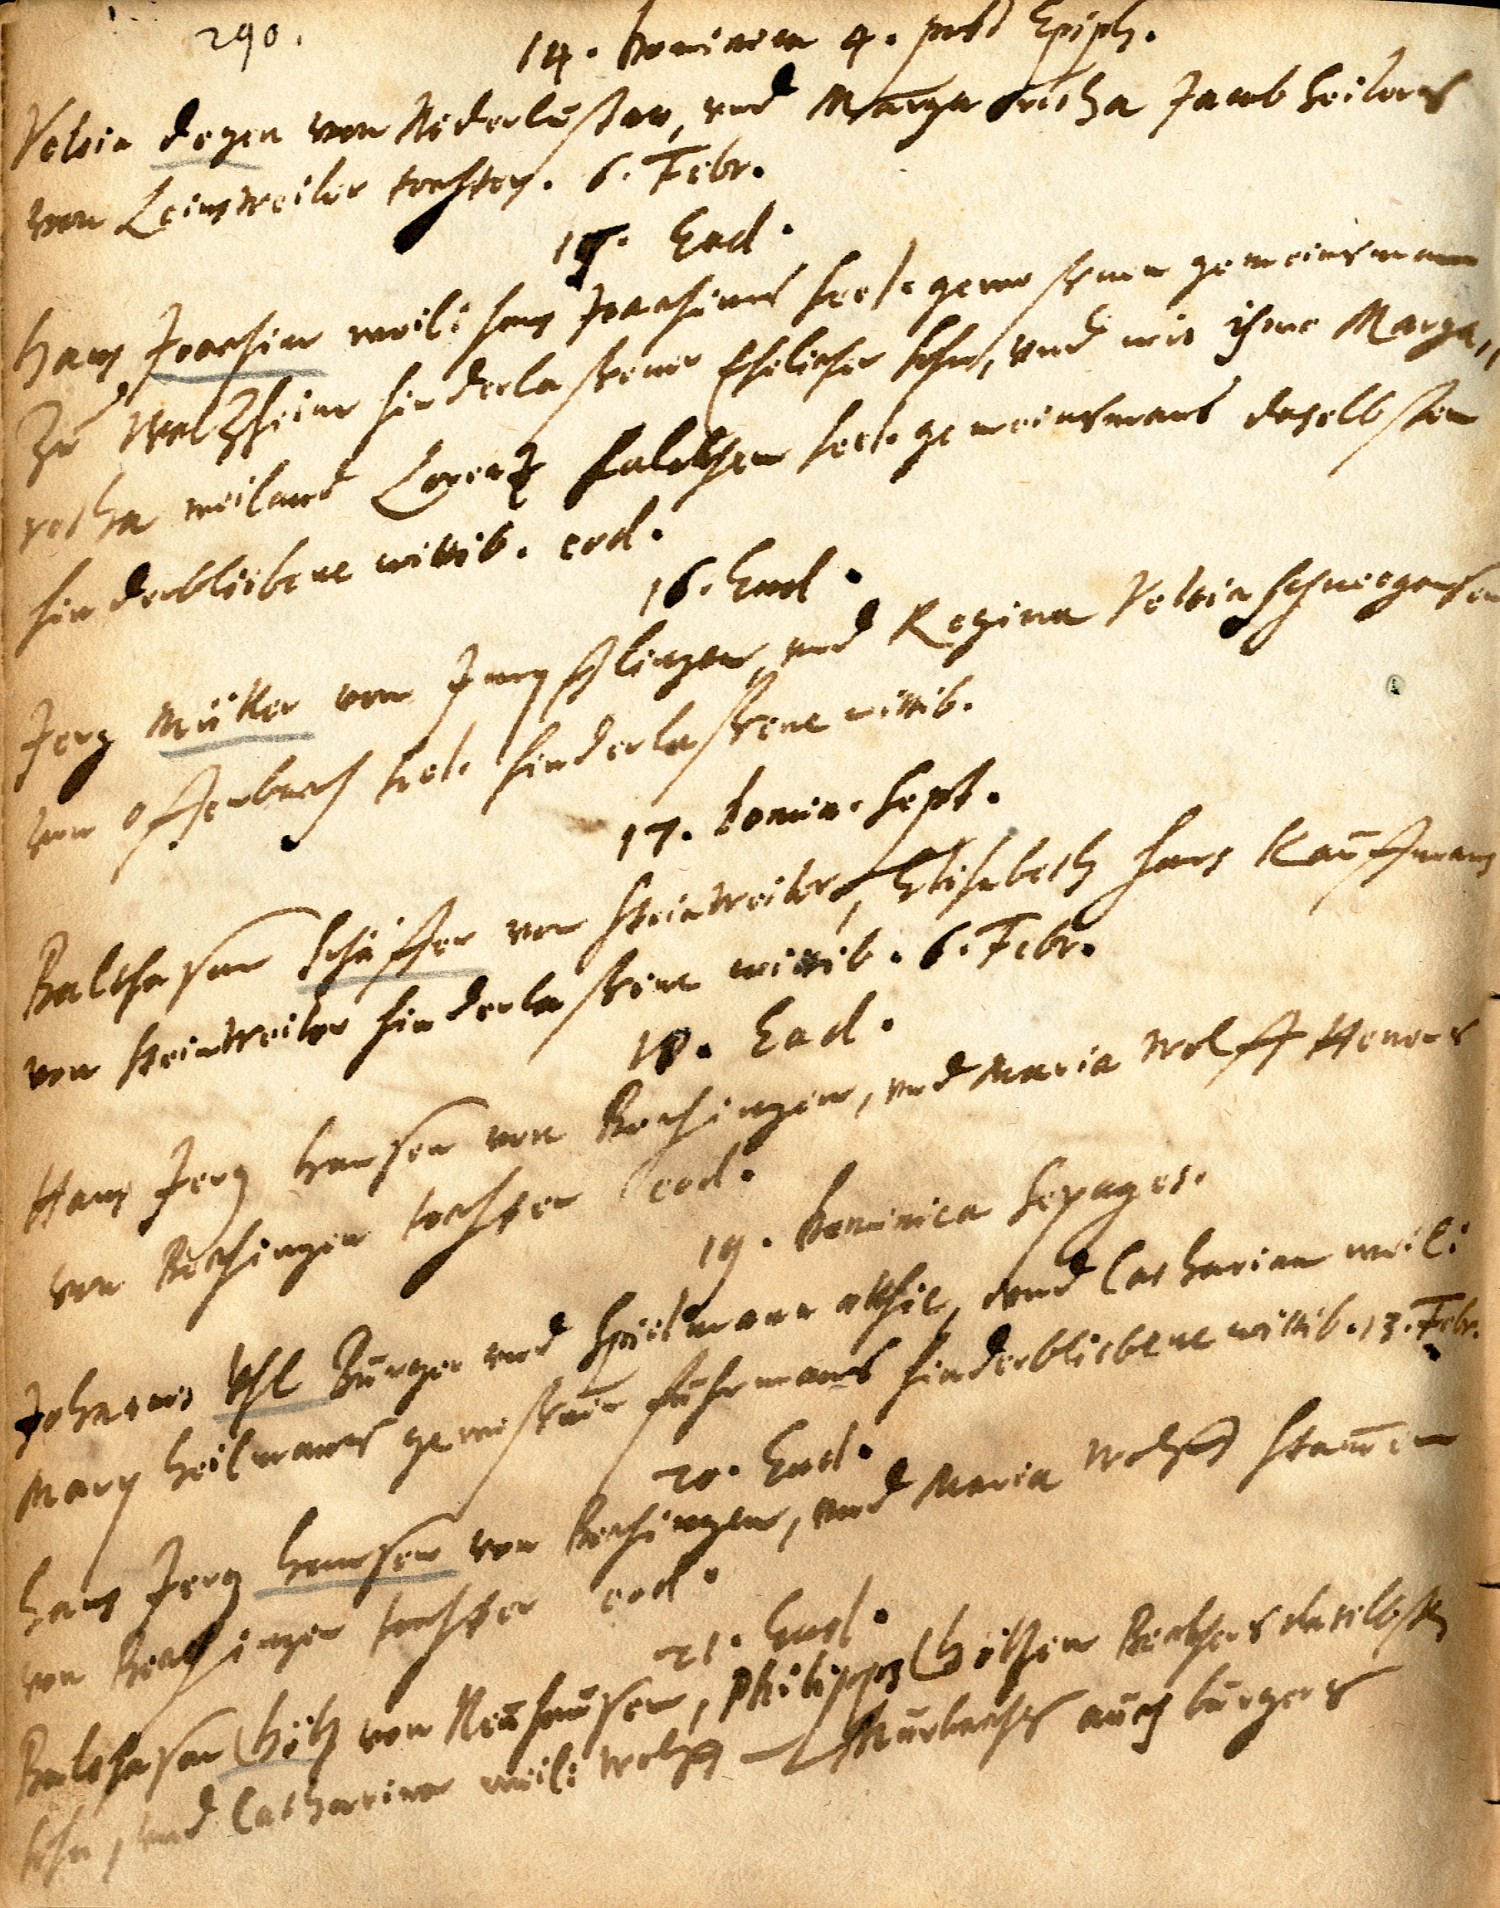 290.
14. Dominica 4. post Epiph.
Veltin Degen von Niderlustat, und Margaretha Jacob Heilers
von Leinsweiler tochter. 6. Febr.
15. Ead.
Hans Joachim weil: Hans Joachims seel. gewesenen gemeinsmann
zu Waltzheim hinderlassener Ehelicher sohn, und mit ihme Marga,,
retha weiland Lorentz seel. gemeinsmans daselbsten
hinderbliebene wittib. eod.
16. Ead.
Jerg Müller von und Regina Veltin
von Offenbach seel. hinderlassene wittib.
17. Domin. Sept.
Balthasar Schäffer von Steinweiler, Elisabeth Hans Kauffmans
von Steinweiler hinderlassene wittib. 6. Febr.
18. Ead.
Hans Jerg Hansen von Bechingen, und Maria Wolff
von Bechingen tochter eod.
19. Dominica Sexages.
Johannes Uhl Burger und Spielmann allhie, und Catharina weil:
Marx Heilmans gewesenen fuhrmans hinderbliebene wittib. 13. Febr.
20. Ead.
Hans Jerg Hansen von Bechingen, und Maria Wolff
von Bechingen tochter eod.
21. Ead.
Balthasar Götz von Neuhausen, Philipps Götzen Beckhers daselbst
sohn, und Catharina weil: Wolff Murbachs auch burgers